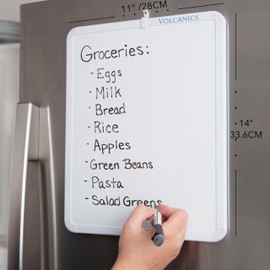 11" /28CM
VOLCANICS
Groceries:
- Eggs
- Milk
- Bread
- Rice
- Apples
- Green Beans
- Pasta
- Salad Greens
14"
33.6CM